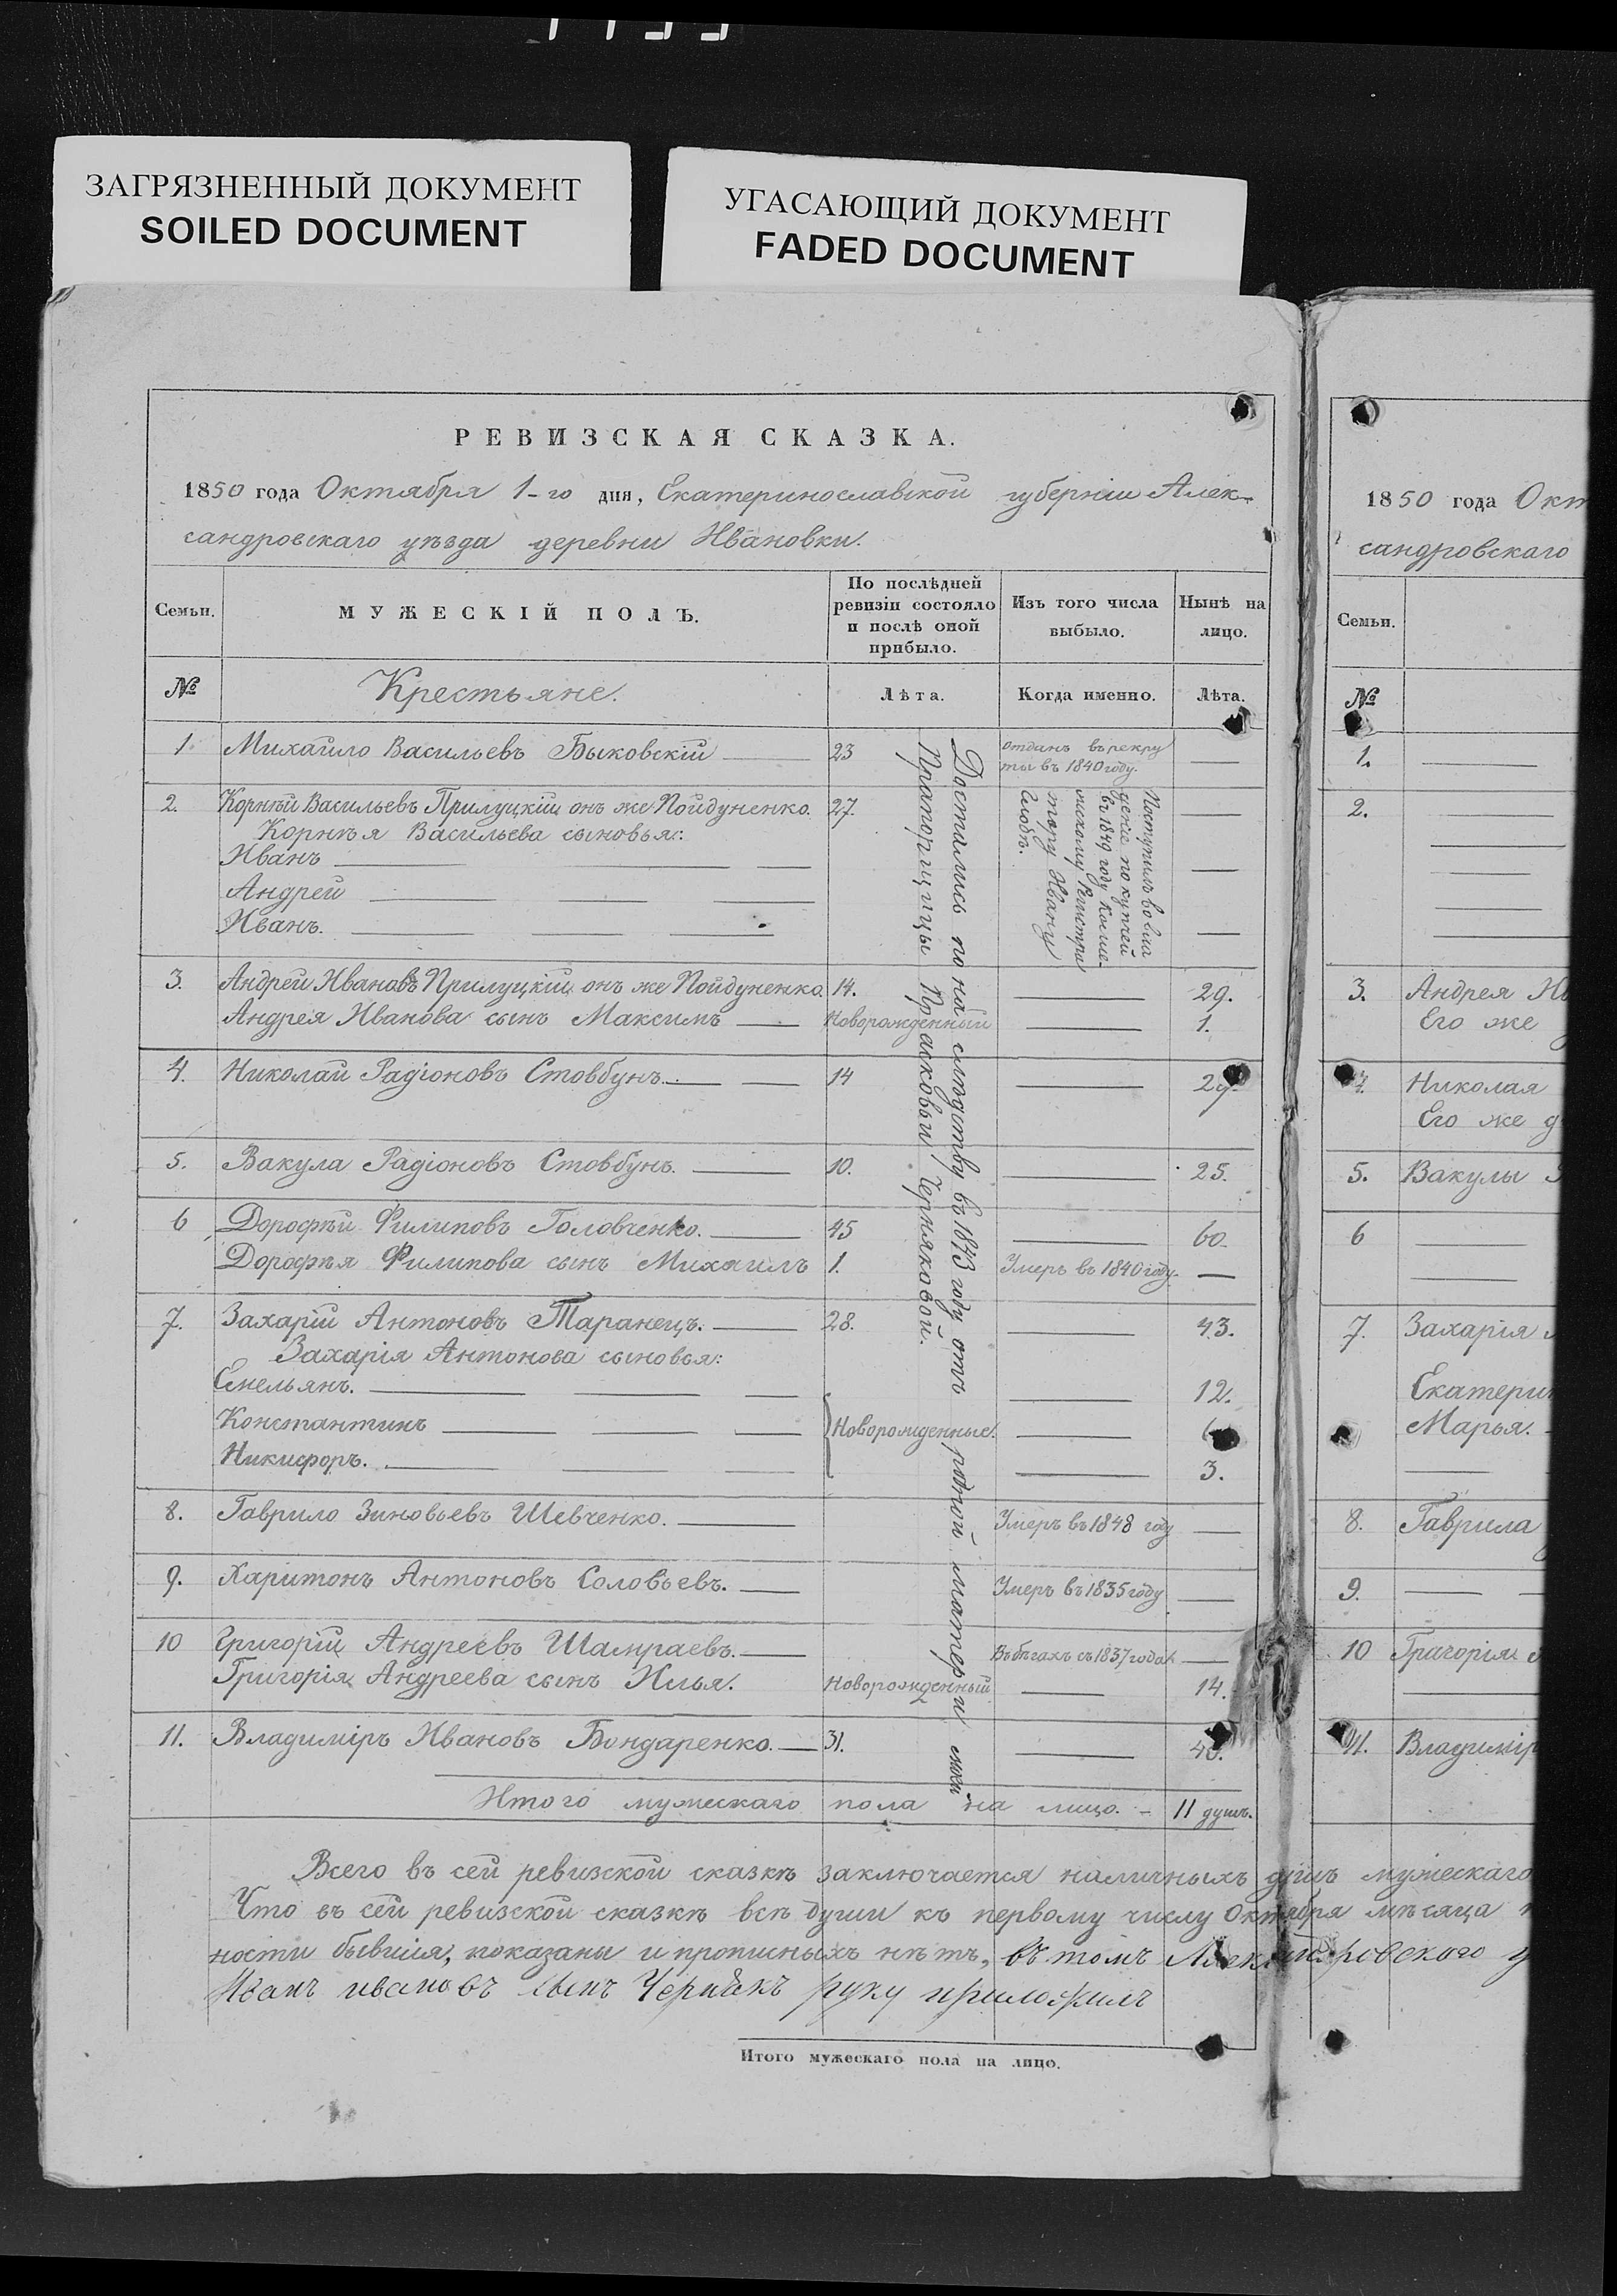 ЗАГРЯЗНЕННЫЙ ДОКУМЕНТ
SOILED DOCUMENT
УГАСАЮЩИЙ ДОКУМЕНТ
FADED DOCUMENT
РЕВИЗСКАЯ СКАЗКА.
1850 года Октября 1-го дня, Екатеринославской губернiи Алек-
сандровскаго уѣзда деревни Ивановки.
Семьи. МУЖЕСКIЙ ПОЛЪ. По послѣдней ревизiи состояло и послѣ оной прибыло. Изъ того числа выбыло. Нынѣ на лицо.
№ Крестьяне. Лѣта. Когда именно. Лѣта.
1. Михайло Васильевъ Быковскiй 23 отданъ въ рекру
ты въ 1840 году.
2. Корнѣй Васильевъ Прилуцкiй онъ же Пойдуненко. 27.
Корнѣя Васильева сыновья:
Иванъ
Андрей
Иванъ.
Поступилъ во вла
дѣнiе по купчей
въ 1849 году Колле-
жскому Регистра
тору Ивану
3. Андрей Ивановъ Прилуцкiй онъ же Пойдуненко. 14. 29.
Андрея Иванова сынъ Максимъ Новорожденный 1.
4. Николай Радiоновъ Стовбунъ. 14 29.
5. Вакула Радiоновъ Стовбунъ. 10. 25.
6 Дорофѣй Филиповъ Головченко. 45 60.
Дорофѣя Филипова сынъ Михаилъ 1. Умеръ въ 1840 году.
7. Захарiй Антоновъ Таранецъ. 28. 43.
Захарiя Антонова сыновья:
Емельянъ. 12.
Константинъ Новорожденные.
Никифоръ. 3.
8. Гаврило Зиновьевъ Шевченко. Умеръ въ 1848 году
9. Харитонъ Антоновъ Соловьевъ. Умеръ въ 1835 году
10 Григорiй Андреевъ Шамраевъ. Въ бѣгахъ съ 1837 года.
Григорiя Андреева сынъ Илья. Новорожденный 14.
11. Владимiръ Ивановъ Бондаренко. 31.
Достались по наслѣдству въ 1843 году отъ родной матери моей
Прапорщицы Прасковьи Черняковой.
Итого мужескаго пола на лицо. - 11 душъ.
Всего въ сей ревизской сказкѣ заключается наличныхъ душъ мужескаго
Что въ сей ревизской сказкѣ всѣ души къ первому числу Октября мѣсяца
ности бывшiя, показаны и прописныхъ нѣтъ, въ томъ Александровского у
Иванъ ивановъ сынъ Чернякъ руку приложилъ
Итого мужескаго пола на лицо.
1850 года Окт
сандровскаго
Семьи.
№
1.
2.
3. Андрея Ив
Его же
4. Николая
Его же д
5. Вакулы
6
7. Захарiя
Екатерин
Марья.
8. Гаврила
9.
10 Григорiя
11. Владимiр